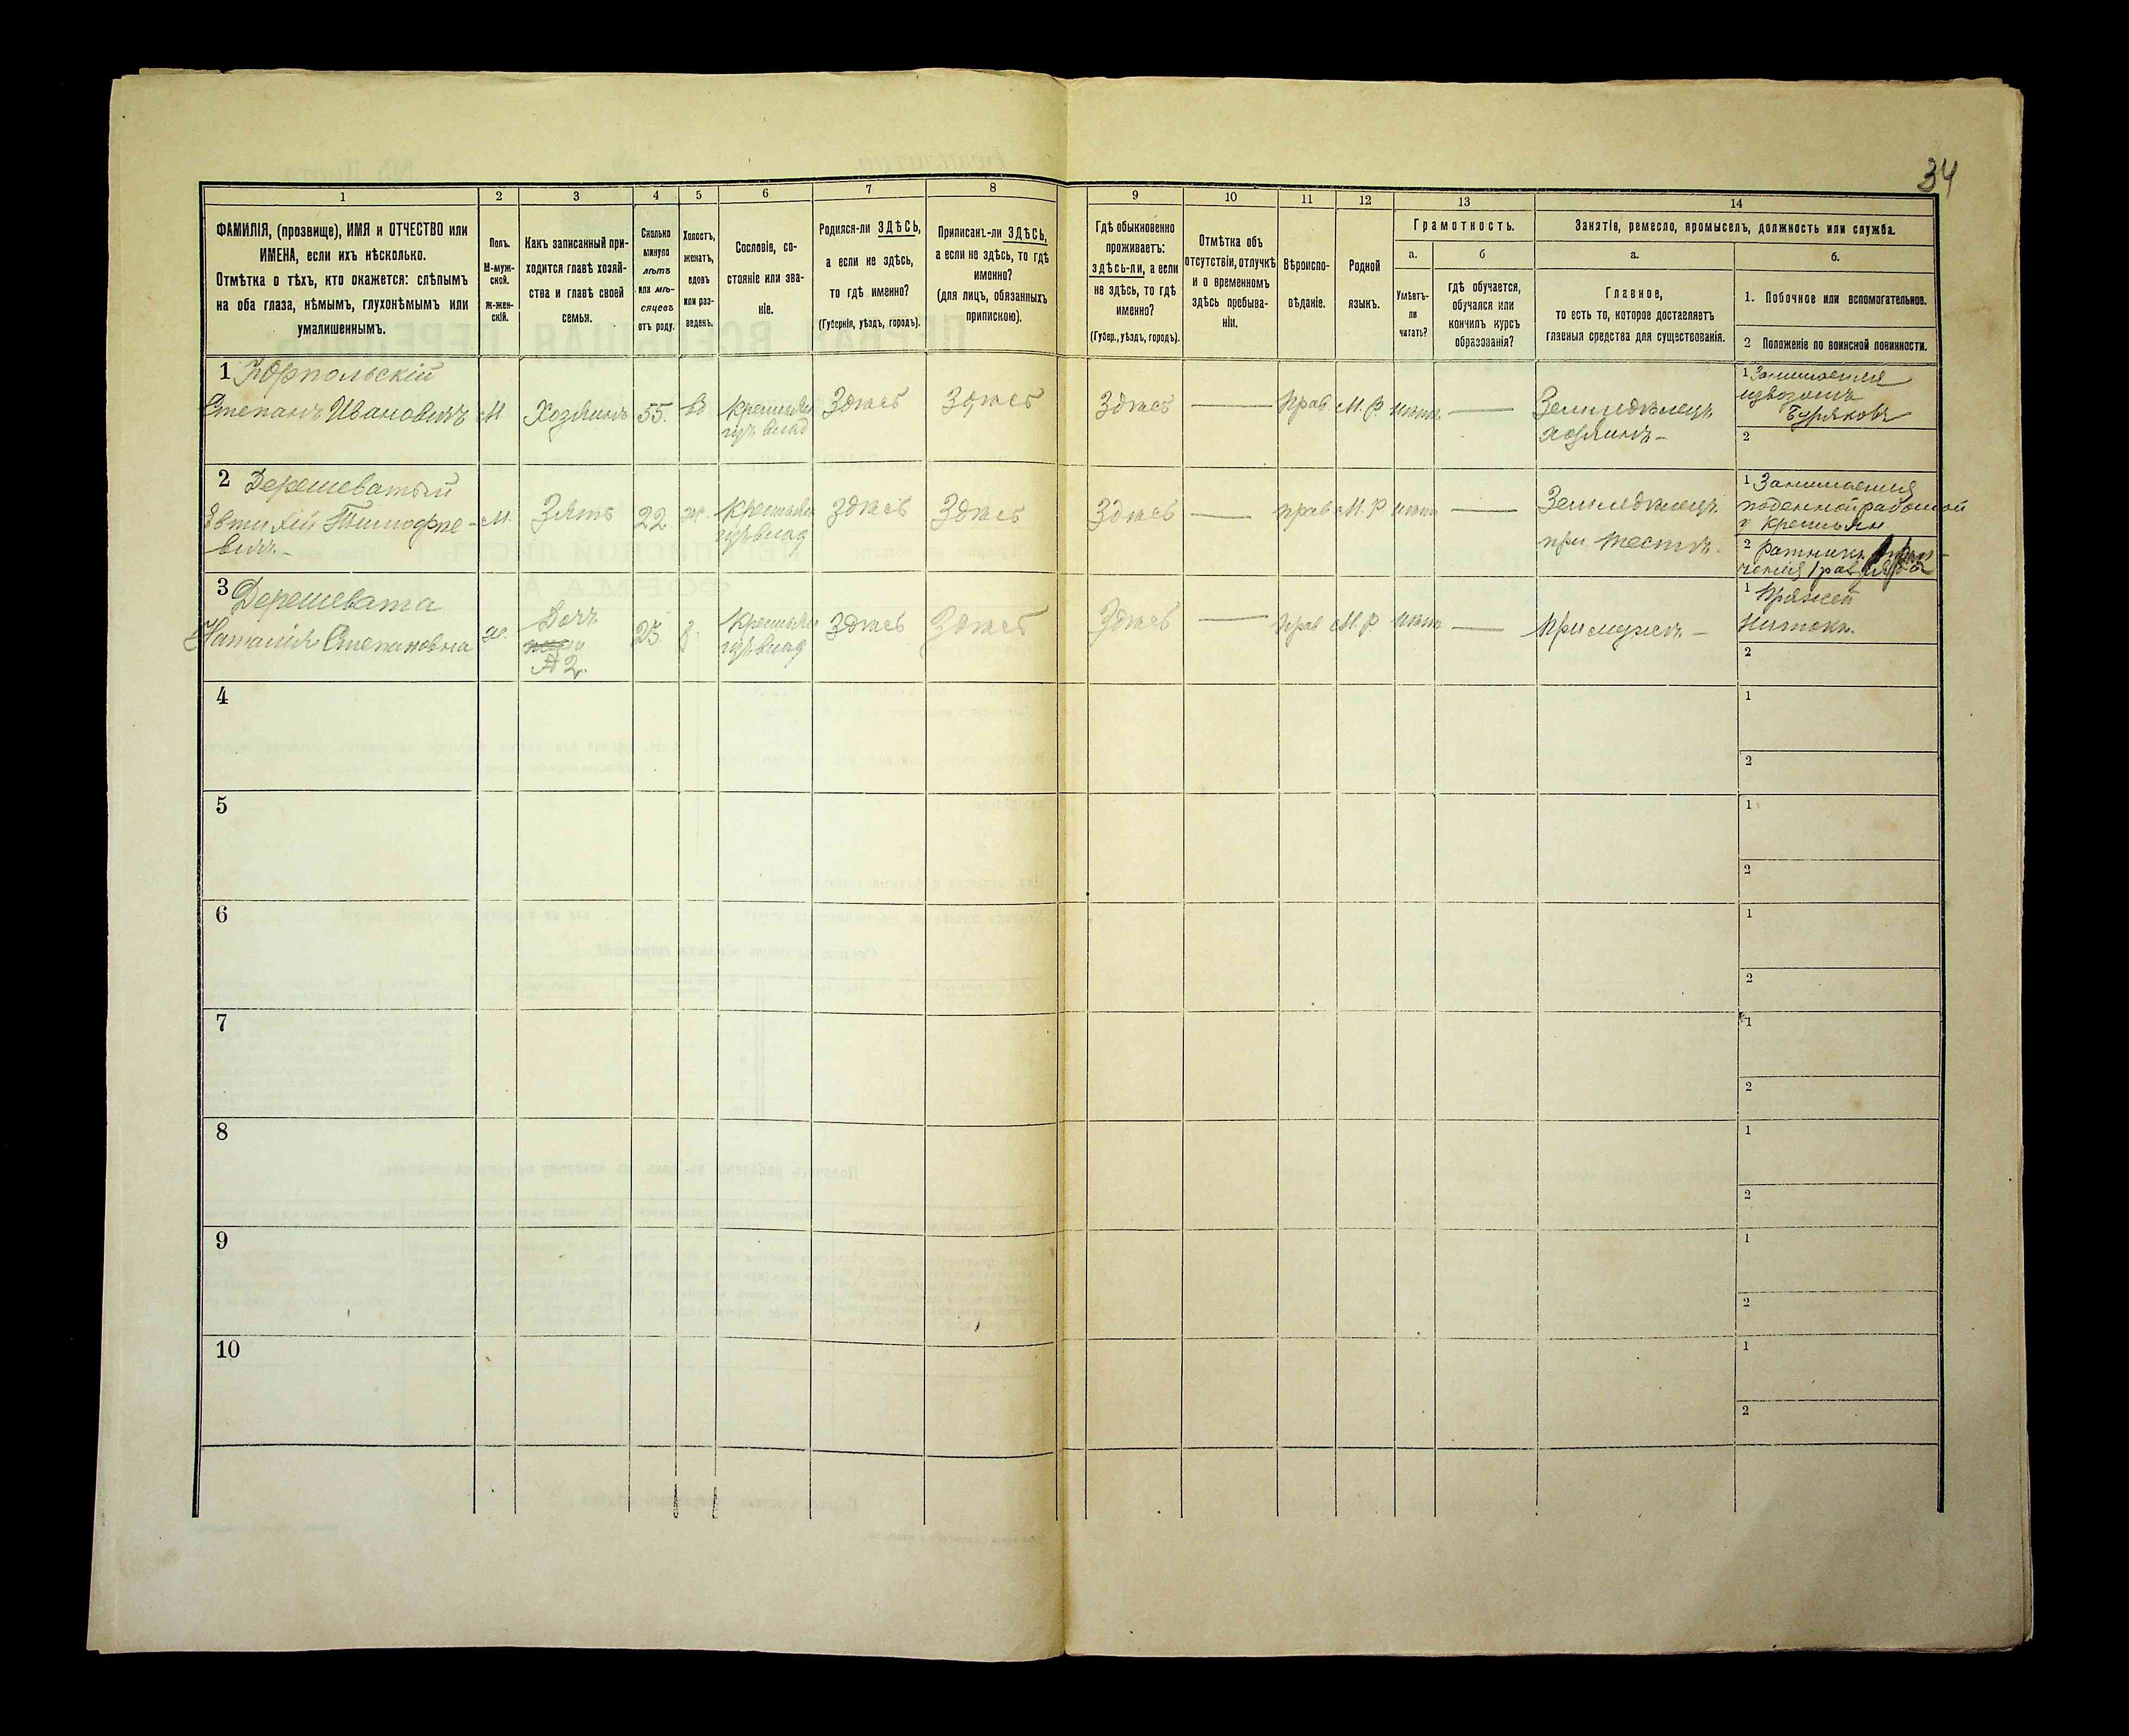 34
1
2
3
4
5
6
7
8
9
10
11
12
13
14
ФАМИЛІЯ, (прозвище), ИМЯ и ОТЧЕСТВО или
ИМЕНА, если ихъ нѣсколько.
Отмѣтка о тѣхъ, кто окажется: слѣпымъ
на оба глаза, нѣмымъ, глухонѣмымъ или
умалишеннымъ.
Полъ.
М-муж-
ской.
Ж-жен-
скій.
Какъ записанный при-
ходится главѣ хозяй-
ства и главѣ своей
семьи.
Сколько
минуло
лѣтъ
или мѣ-
сяцевъ
отъ роду.
Холостъ,
женатъ,
вдовъ
или раз-
веденъ.
Сословіе, со-
стояніе или зва-
ніе.
Родился-ли ЗДѢСЬ,
а если не здѣсь,
то гдѣ именно?
(Губернія, уѣздъ, городъ).
Приписанъ-ли ЗДѢСЬ,
а если не здѣсь, то гдѣ
именно?
(для лицъ, обязанныхъ
припискою).
Гдѣ обыкновенно
проживаетъ:
здѣсь-ли, а если
не здѣсь, то гдѣ
именно?
(Губер., уѣздъ, городъ).
Отмѣтка объ
отсутствіи, отлучкѣ
и о временномъ
здѣсь пребыва-
ніи.
Вѣроиспо-
вѣданіе.
Родной
языкъ.
Грамотность.
а.
б
Умѣетъ-
ли
читать?
гдѣ обучается,
обучался или
кончилъ курсъ
образованія?
Занятіе, ремесло, промыселъ, должность или служба.
а.
б.
Главное,
то есть то, которое доставляетъ
главныя средства для существованія.
1. Побочное или вспомогательное.
2 Положеніе по воинской повинности.
1 Юрпольскій
Степанъ Ивановичъ
М
Хозяинъ
55.
вд
Крестьян
изъ влад
Здѣсь
Здѣсь
Здѣсь
—
Прав
М. Р.
нѣтъ
—
Земледѣлецъ
хозяинъ-
1 Занимается
извозомъ
Буряковъ
2
2 Дерешеватый
Евтихій Тимофѣе-
вичъ-
М.
Зять
22
ж.
Крестьян
изъ влад
здѣсь
Здѣсь
Здѣсь
—
прав
М. Р
нѣтъ
—
Земледѣлецъ
при тестѣ.
1 Занимается
поденной работой
у крестьян
2 ратникъ
3 Дерешевата
Наталія Степановна
ж.
Дочь
№ 2.
25.
з.
Крестьян
изъ влад
Здѣсь
Здѣсь
Здѣсь
—
прав
М. Р
нѣтъ
—
При мужѣ -
1 Пряжей
нитокъ.
2
4
1
2
5
1
2
6
1
2
7
1
2
8
1
2
9
1
2
10
1
2